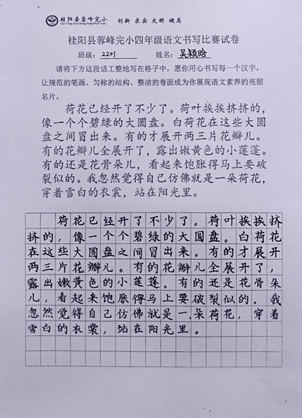 桂阳县蓉峰完小
创新 求实 文明 健美
桂阳县蓉峰完小四年级语文书写比赛试卷
班级: 2201 姓名: 吴颖晗
请将下方这段话工整地写在格子中,愿你用心书写每一个汉字,
让规范的笔画、匀称的结构、整洁的卷面成为你展现语文素养的亮丽
名片。
荷花已经开了不少了。荷叶挨挨挤挤的,
像一个个碧绿的大圆盘。白荷花在这些大圆
盘之间冒出来。有的才展开两三片花瓣儿。
有的花瓣儿全展开了,露出嫩黄色的小莲蓬。
有的还是花骨朵儿,看起来饱胀得马上要破
裂似的。我忽然觉得自己仿佛就是一朵荷花,
穿着雪白的衣裳,站在阳光里。
荷花已经开了不少了。荷叶挨挨挤
挤的,像一个个碧绿的大圆盘。白荷花
在这些大圆盘之间冒出来。有的才展开
两三片花瓣儿。有的花瓣儿全展开了,
露出嫩黄色的小莲蓬。有的还是花骨朵
儿,看起来饱胀得马上要破裂似的。我
忽然觉得自己仿佛就是一朵荷花,穿着
雪白的衣裳,站在阳光里。